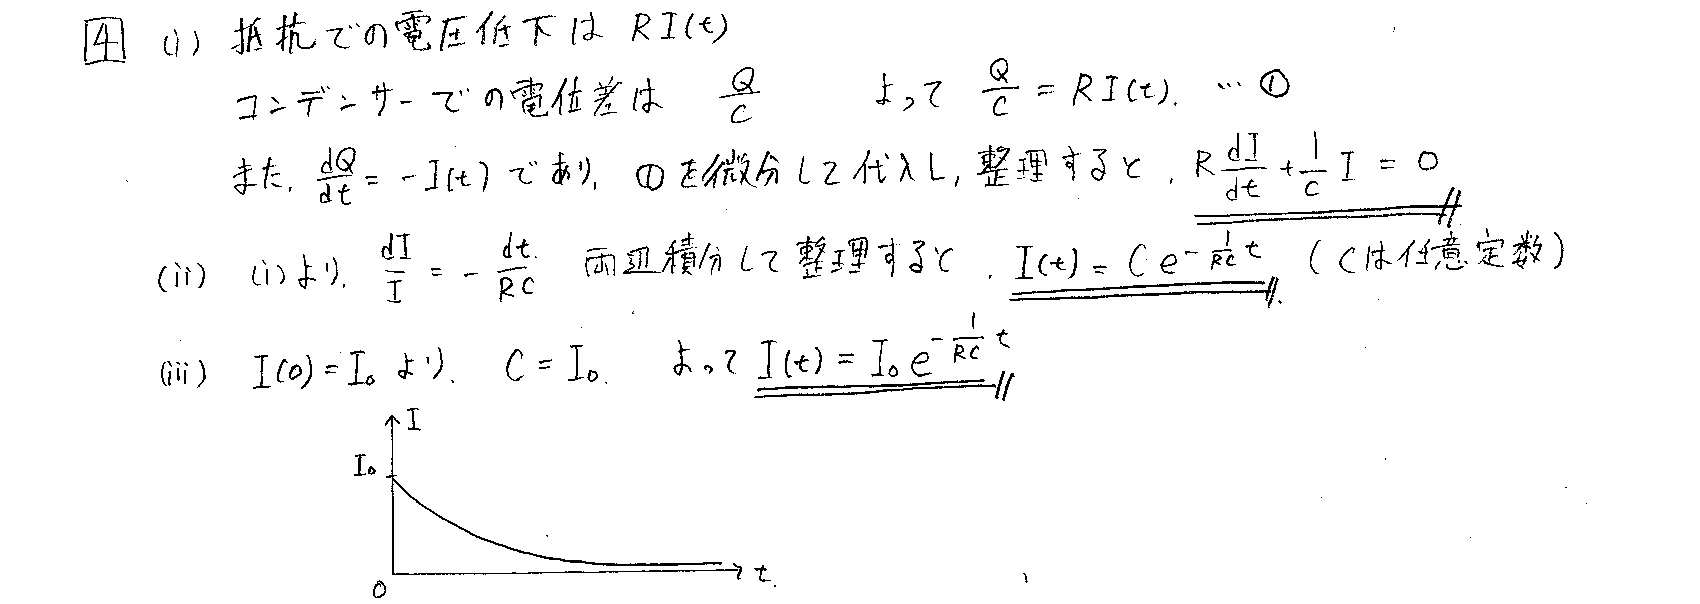 4 (i) 抵抗での電圧低下は RI(t)
コンデンサーでの電位差は Q/C よって Q/C = RI(t). … ①
また、dQ/dt = -I(t) であり、①を微分して代入し、整理すると、R dI/dt + 1/C I = 0
(ii) (i)より、dI/I = - dt/RC 両辺積分して整理すると、I(t) = C e^{-1/RC t} (Cは任意定数)
(iii) I(0) = I₀ より、C = I₀. よって I(t) = I₀ e^{-1/RC t}
I
I₀
0 t